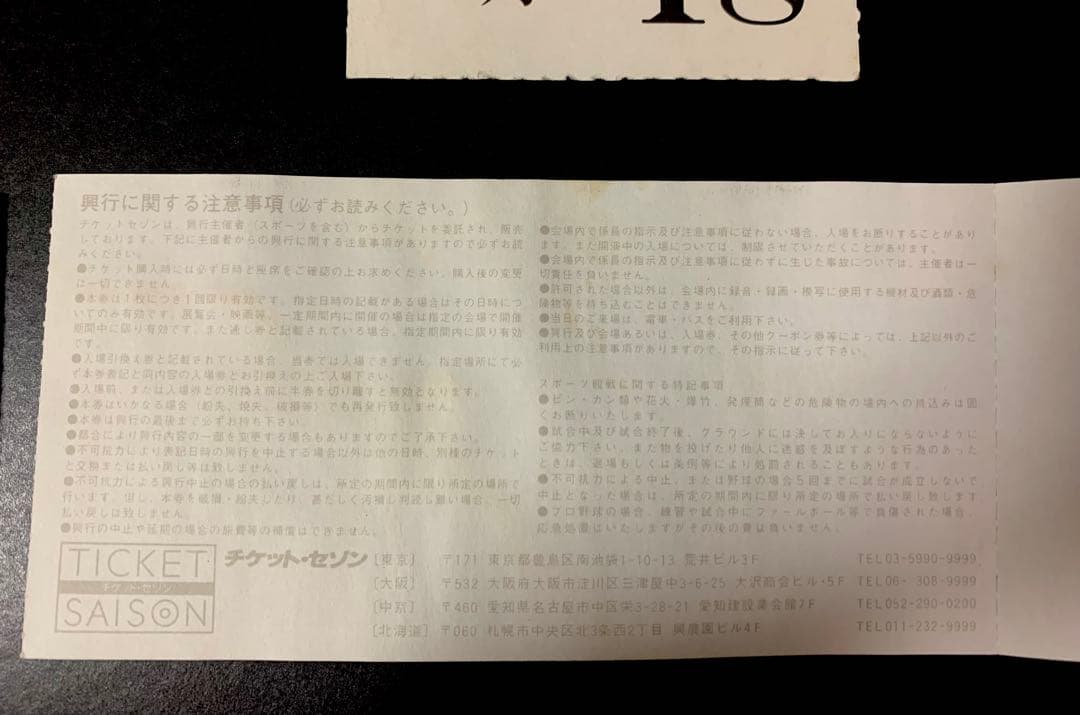 18
興行に関する注意事項(必ずお読みください。)
チケットセゾンは、興行主催者(スポーツを含む)からチケットを委託され、販売
しております。下記に主催者からの興行に関する注意事項がありますので必ずお読
みください。
●チケット購入時には必ず日時と座席をご確認の上お求めください。購入後の変更
は一切できません。
●本券は1枚につき1回限り有効です。指定日時の記載がある場合はその日時につ
いてのみ有効です。展覧会・映画等、一定期間内に開催の場合は指定の会場で開催
期間中に限り有効です。また通し券と記載されている場合、指定期間内に限り有効
です。
●入場引換え券と記載されている場合、当券では入場できません。指定場所にて必
ず本券表記と同内容の入場券とお引換えの上ご入場下さい。
●入場前、または入場券との引換え前に本券を切り離すと無効となります。
●本券はいかなる場合(紛失、焼失、破損等)でも再発行致しません。
●本券は興行の最後まで必ずお持ち下さい。
●都合により興行内容の一部を変更する場合もありますのでご了承下さい。
●不可抗力により表記日時の興行を中止する場合以外は他の日時、別種のチケット
と交換または払い戻し等は致しません。
●不可抗力による興行中止の場合の払い戻しは、所定の期間内に限り所定の場所で
行います。但し、本券を破損・紛失したり、甚だしく汚損し判読し難い場合、一切
払い戻しは致しません。
●興行の中止や延期の場合の旅費等の補償はできません。
●会場内で係員の指示及び注意事項に従わない場合、入場をお断りすることがあり
ます。また開催中の入場については、制限させていただくことがあります。
●会場内で係員の指示及び注意事項に従わずに生じた事故については、主催者は一
切責任を負いません。
●許可された場合以外は、会場内に録音・録画・模写に使用する機材及び酒類・危
険物等を持ち込むことはできません。
●当日のご来場は、電車・バスをご利用下さい。
●興行及び会場あるいは、入場券、その他クーポン券等によっては、上記以外のご
利用上の注意事項がありますので、その指示に従って下さい。
スポーツ観戦に関する特記事項
●ビン・カン類や花火・爆竹、発煙筒などの危険物の場内への持込みは固
くお断りいたします。
●試合中及び試合終了後、グラウンドには決してお入りにならないように
ご協力下さい。また物を投げたり他人に迷惑を及ぼすような行為のあった
ときは、退場もしくは条例等により処罰されることもあります。
●不可抗力による中止、または野球の場合5回までに試合が成立しないで
中止となった場合は、所定の期間内に限り所定の場所で払い戻し致します
●プロ野球の場合、練習や試合中にファールボール等で負傷された場合、
応急処置はいたしますがその後の費は負いません。
TICKET
チケット・セゾン
SAISON
チケット・セゾン
〔東京〕 〒171 東京都豊島区南池袋1-10-13 荒井ビル3F TEL03-5990-9999
〔大阪〕 〒532 大阪府大阪市淀川区三津屋中3-6-25 大沢商会ビル・5F TEL06-308-9999
〔中京〕 〒460 愛知県名古屋市中区栄3-28-21 愛知建設業会館7F TEL052-290-0200
〔北海道〕 〒060 札幌市中央区北3条西2丁目 興農園ビル4F TEL011-232-9999